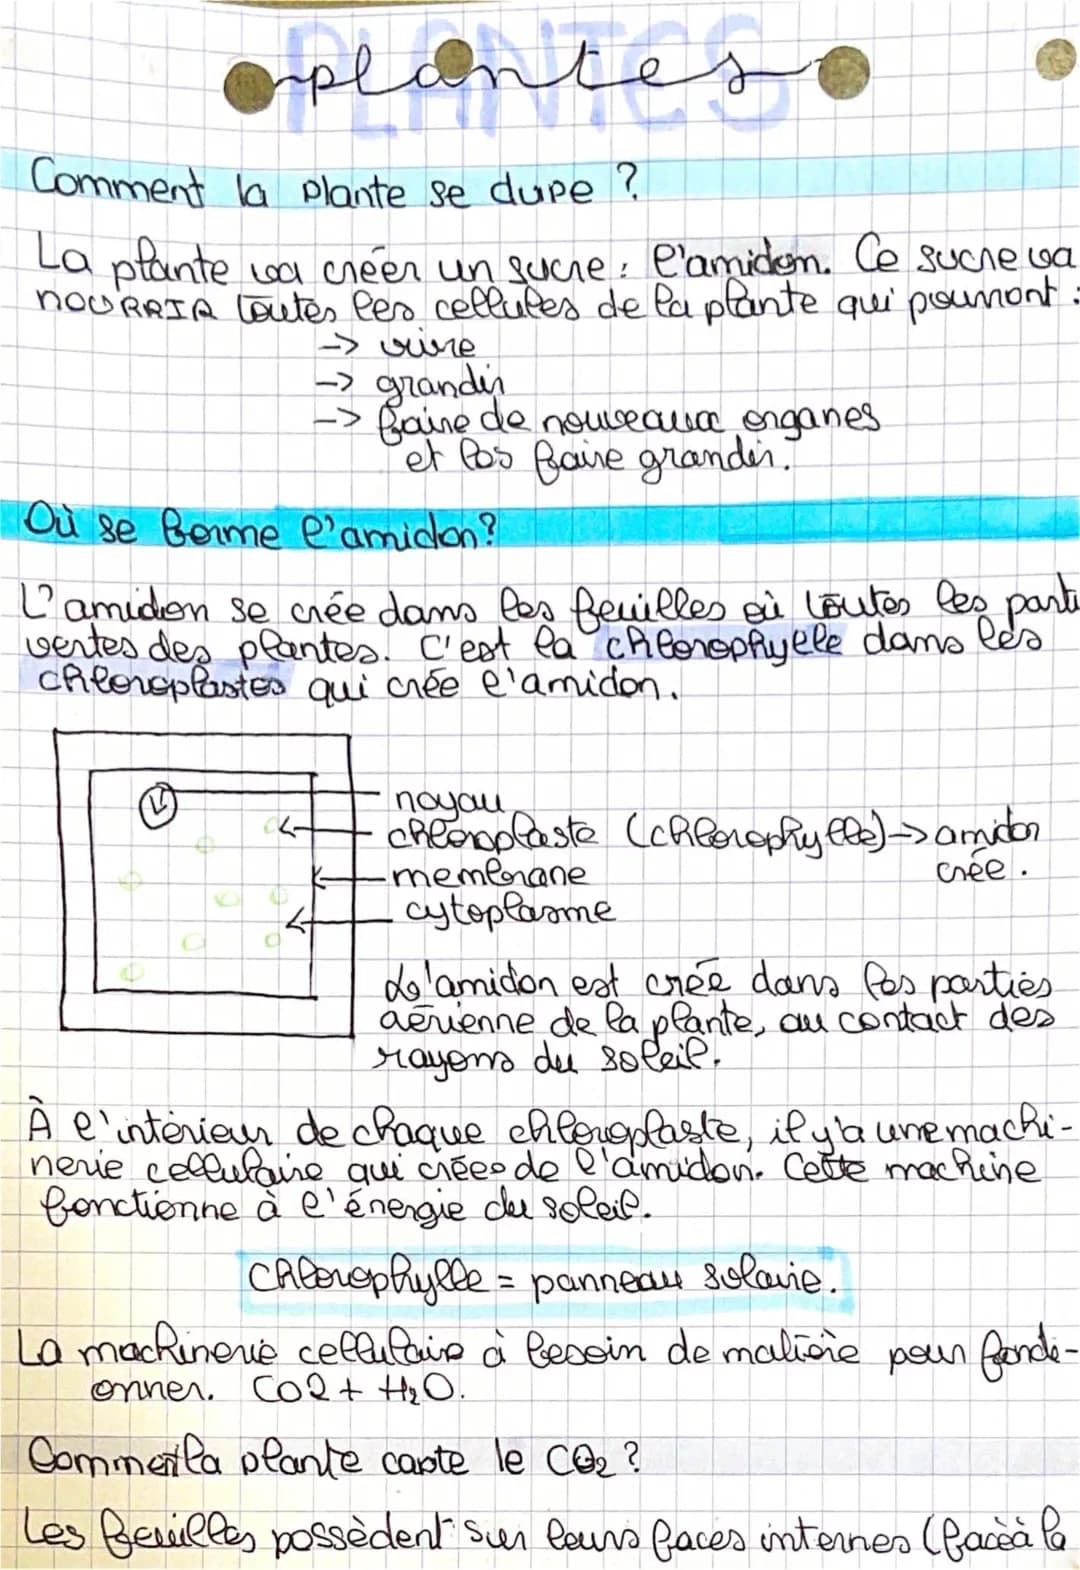 PLANTES
plantes
Comment la plante se dupe ?
La plante va créer un sucre : l'amidon. Ce sucre va
NOURRIR toutes les cellules de la plante qui pourront :
-> vivre
-> grandir
-> faire de nouveaux organes
et les faire grandir.
Où se forme l'amidon?
L'amidon se crée dans les feuilles où toutes les parti
vertes des plantes. C'est la chlorophylle dans les
chloroplastes qui crée l'amidon.
noyau
chloroplaste (chlorophylle) -> amidon
crée.
membrane
cytoplasme
L'amidon est crée dans les parties
aérienne de la plante, au contact des
rayons du soleil.
À l'intérieur de chaque chloroplaste, il y'a une machi-
nerie cellulaire qui crées de l'amidon. Cette machine
fonctionne à l'énergie du soleil.
Chlorophylle = panneau solaire.
La machinerie cellulaire à besoin de matière pour foncti-
onner. CO2 + H₂O.
Comment la plante capte le CO₂ ?
Les feuilles possèdent sur leurs faces internes (face à la